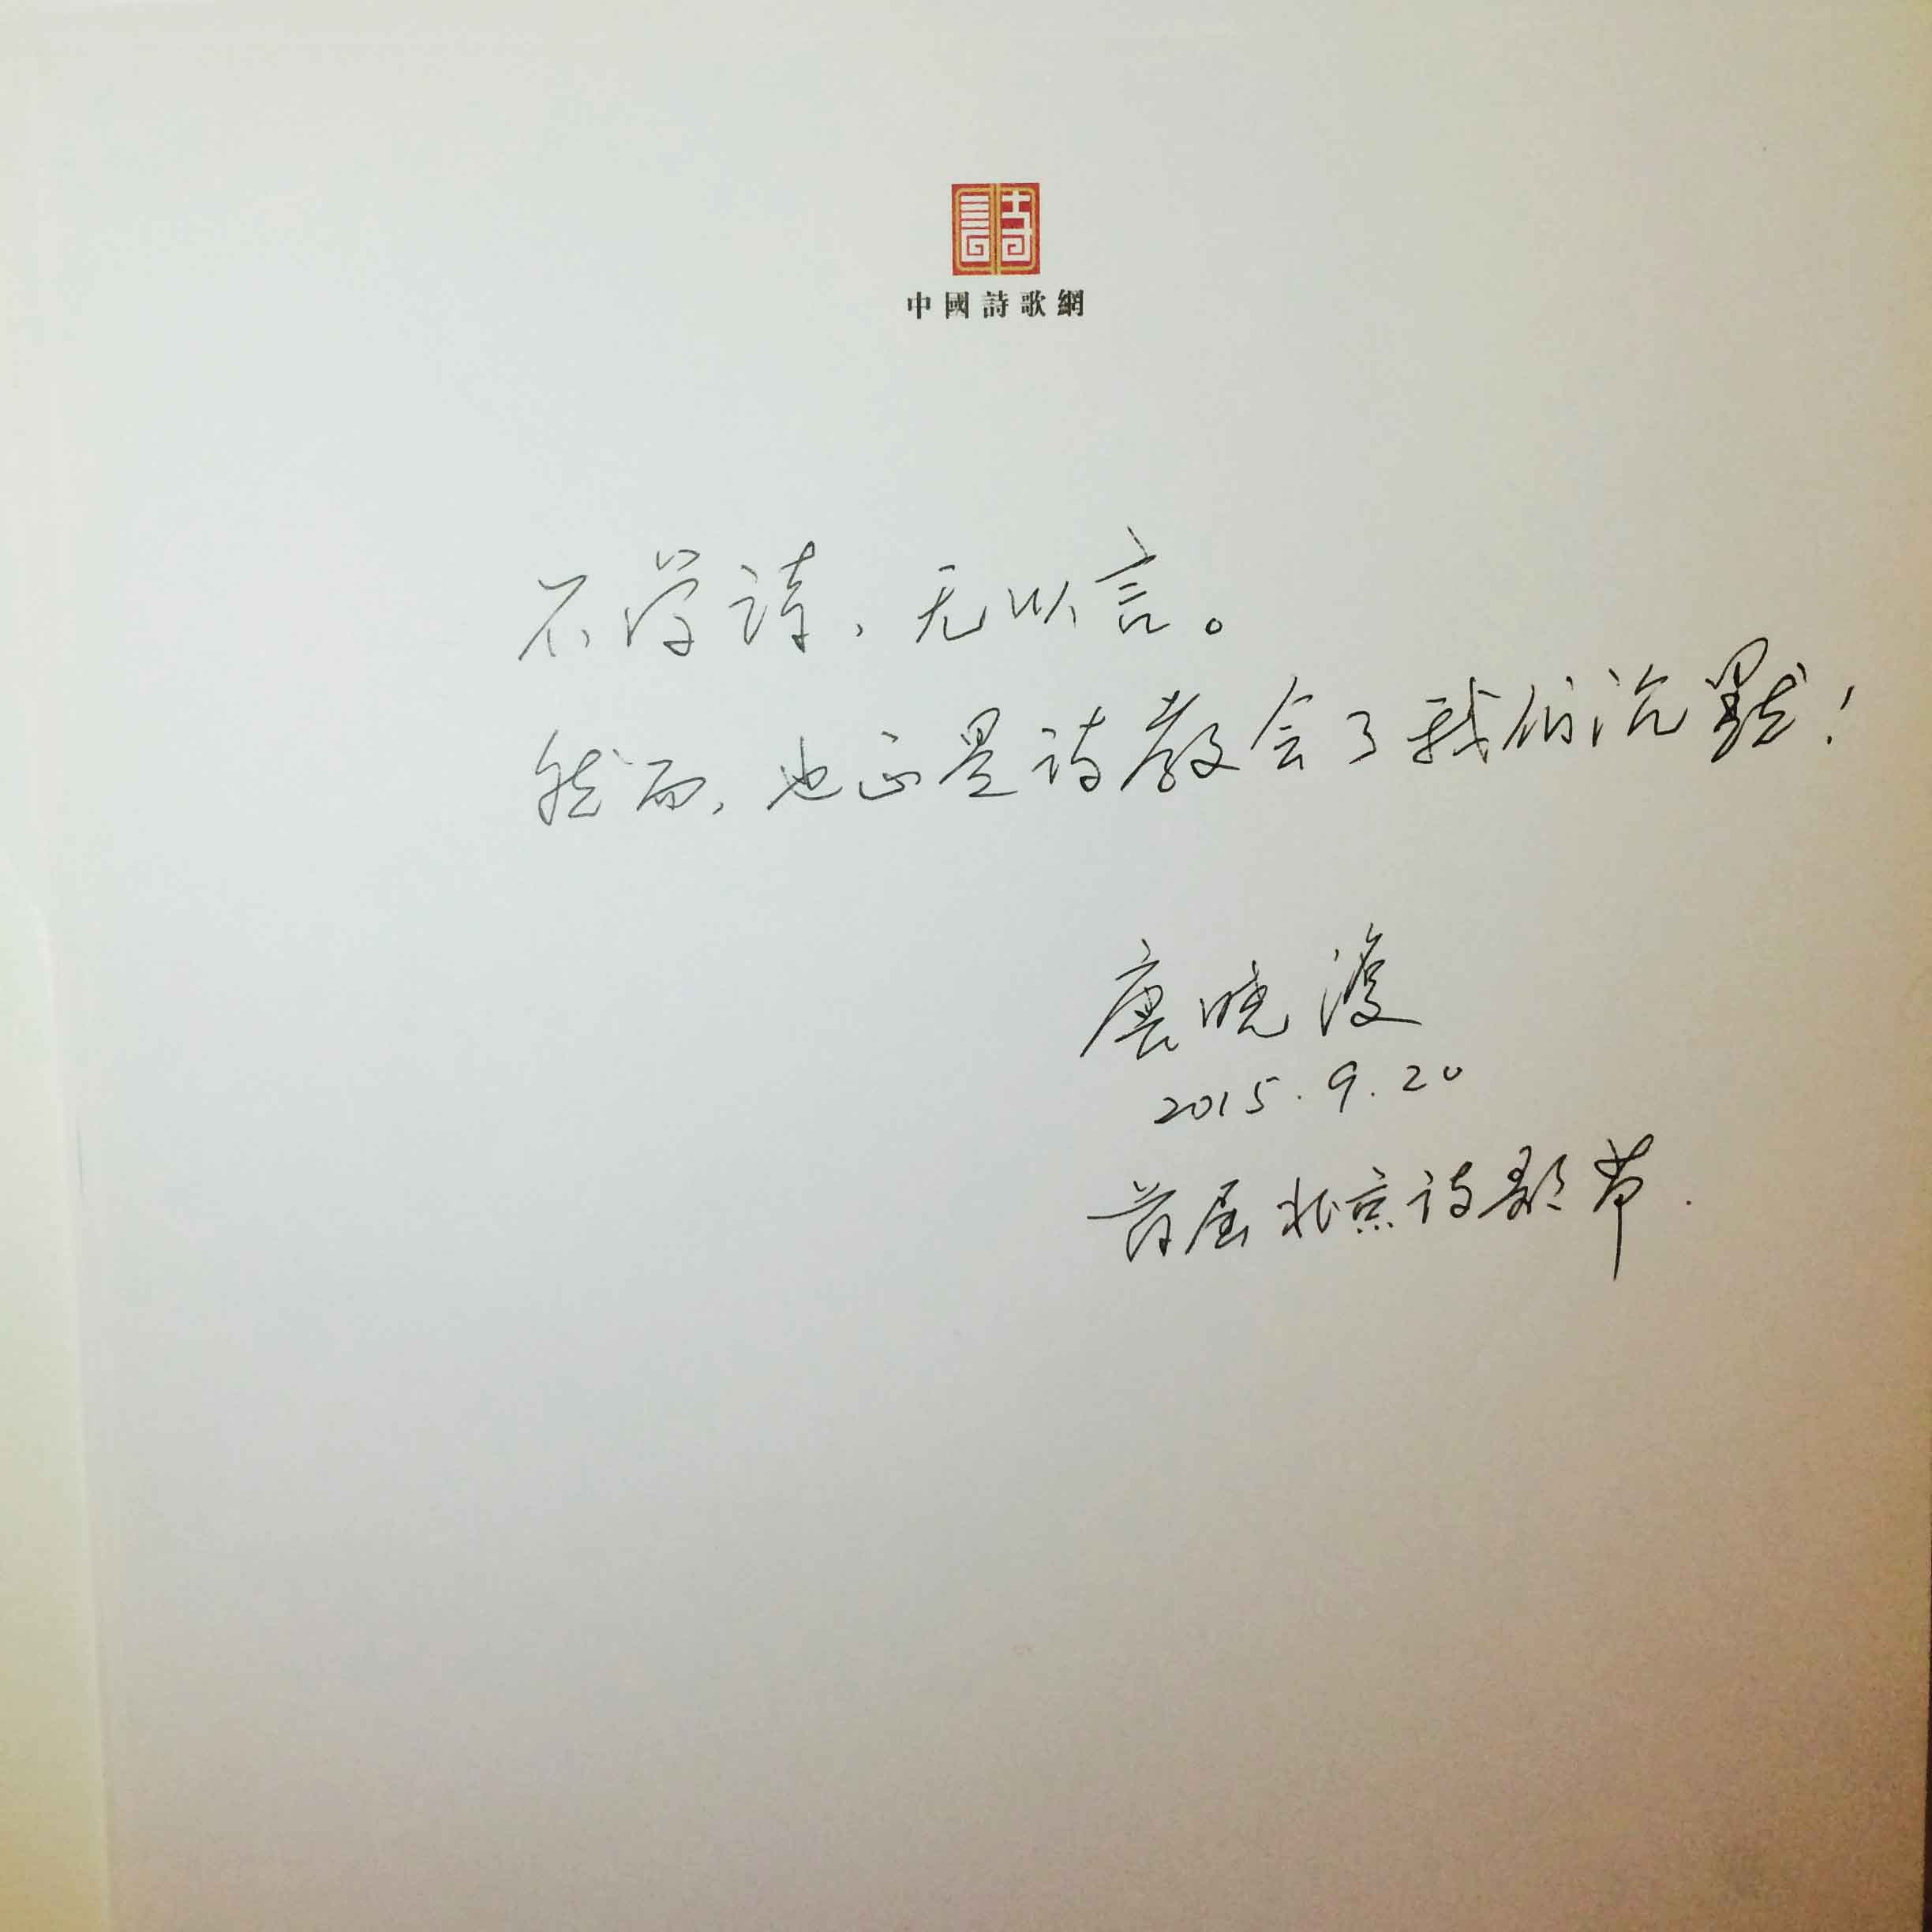 詩
中國詩歌網
不学诗，无以言。
然而，也正是诗教会了我们沉默！
唐晓渡
2015.9.20
首届北京诗歌节.